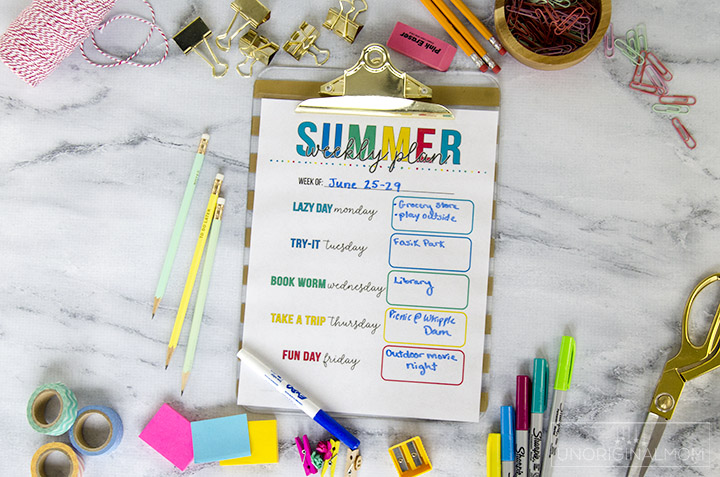 Pink Eraser
SUMMER
weekly plan
WEEK OF: June 25-29
LAZY DAY monday
• Grocery store
• play outside
TRY-IT tuesday
Fasik Park
BOOK WORM wednesday
Library
TAKE A TRIP thursday
Picnic @ Whipple
Dam
FUN DAY friday
Outdoor movie
night
Sharpie
UNORIGINALMOM